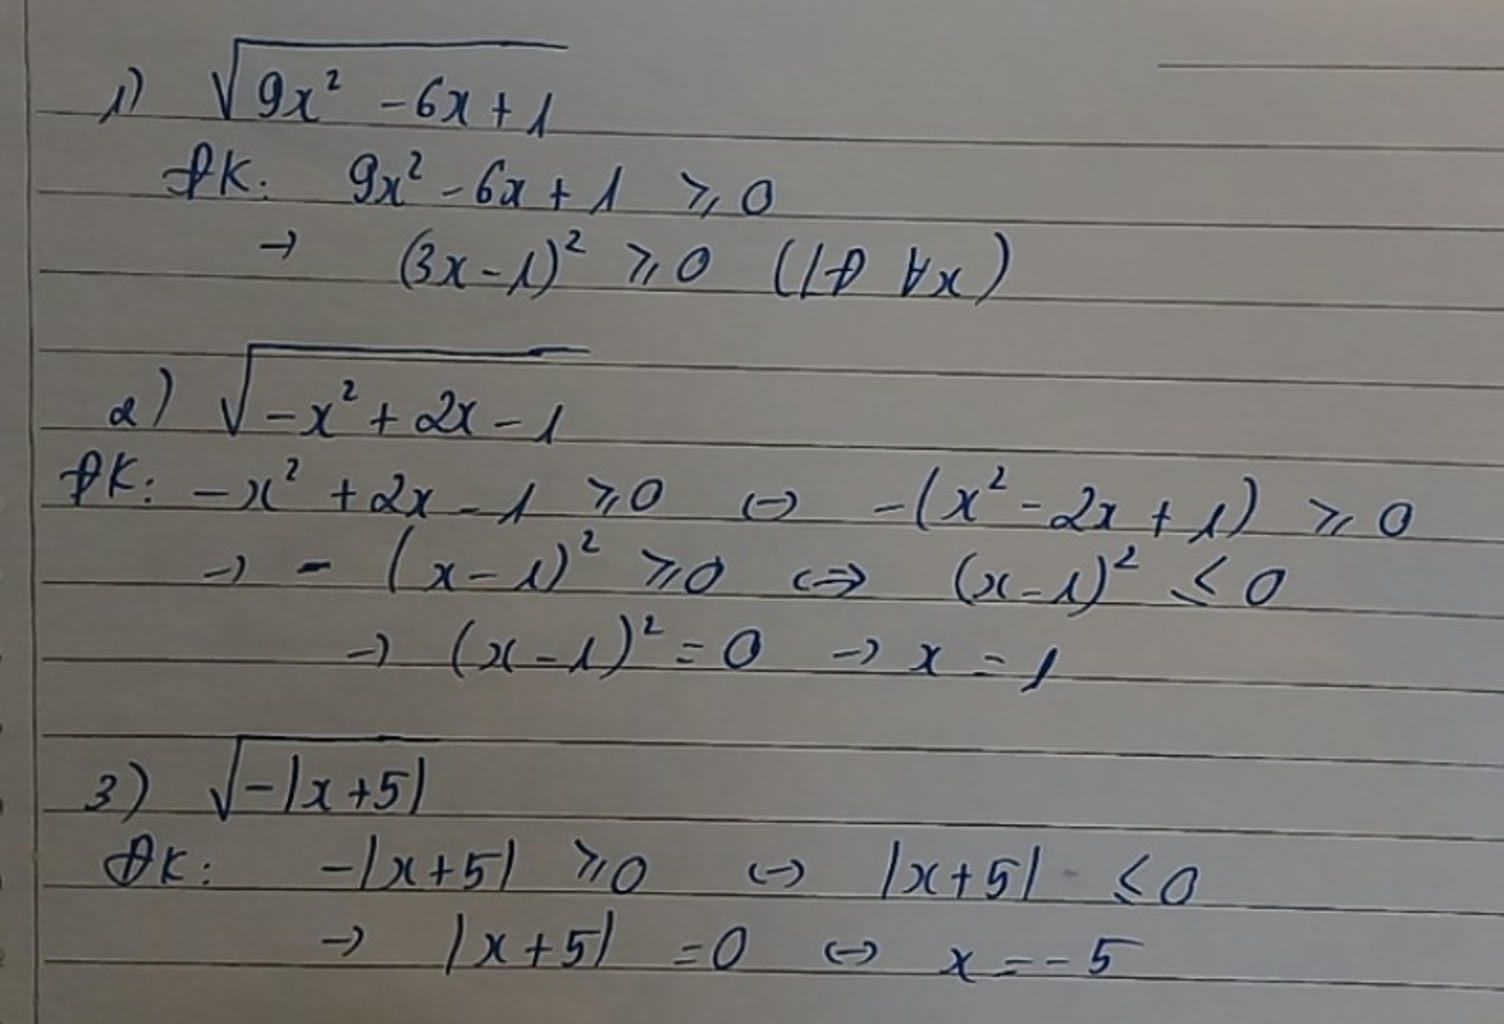 1) √(9x² - 6x + 1)
ĐK: 9x² - 6x + 1 ≥ 0
→ (3x - 1)² ≥ 0 (LĐ ∀x)
2) √(-x² + 2x - 1)
ĐK: -x² + 2x - 1 ≥ 0 ↔ -(x² - 2x + 1) ≥ 0
→ - (x - 1)² ≥ 0 ⇔ (x - 1)² ≤ 0
→ (x - 1)² = 0 → x = 1
3) √(-|x + 5|)
ĐK: -|x + 5| ≥ 0 ↔ |x + 5| ≤ 0
→ |x + 5| = 0 ↔ x = -5